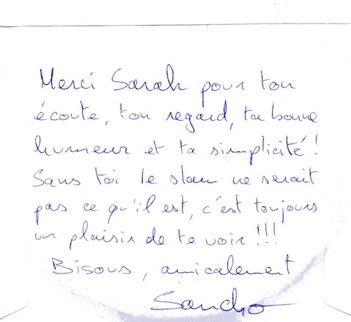 Merci Sarah pour ton
écoute, ton regard, ta bonne
humeur et ta simplicité !
Sans toi le slam ne serait
pas ce qu'il est, c'est toujours
un plaisir de te voir !!!
Bisous, amicalement
Sancho